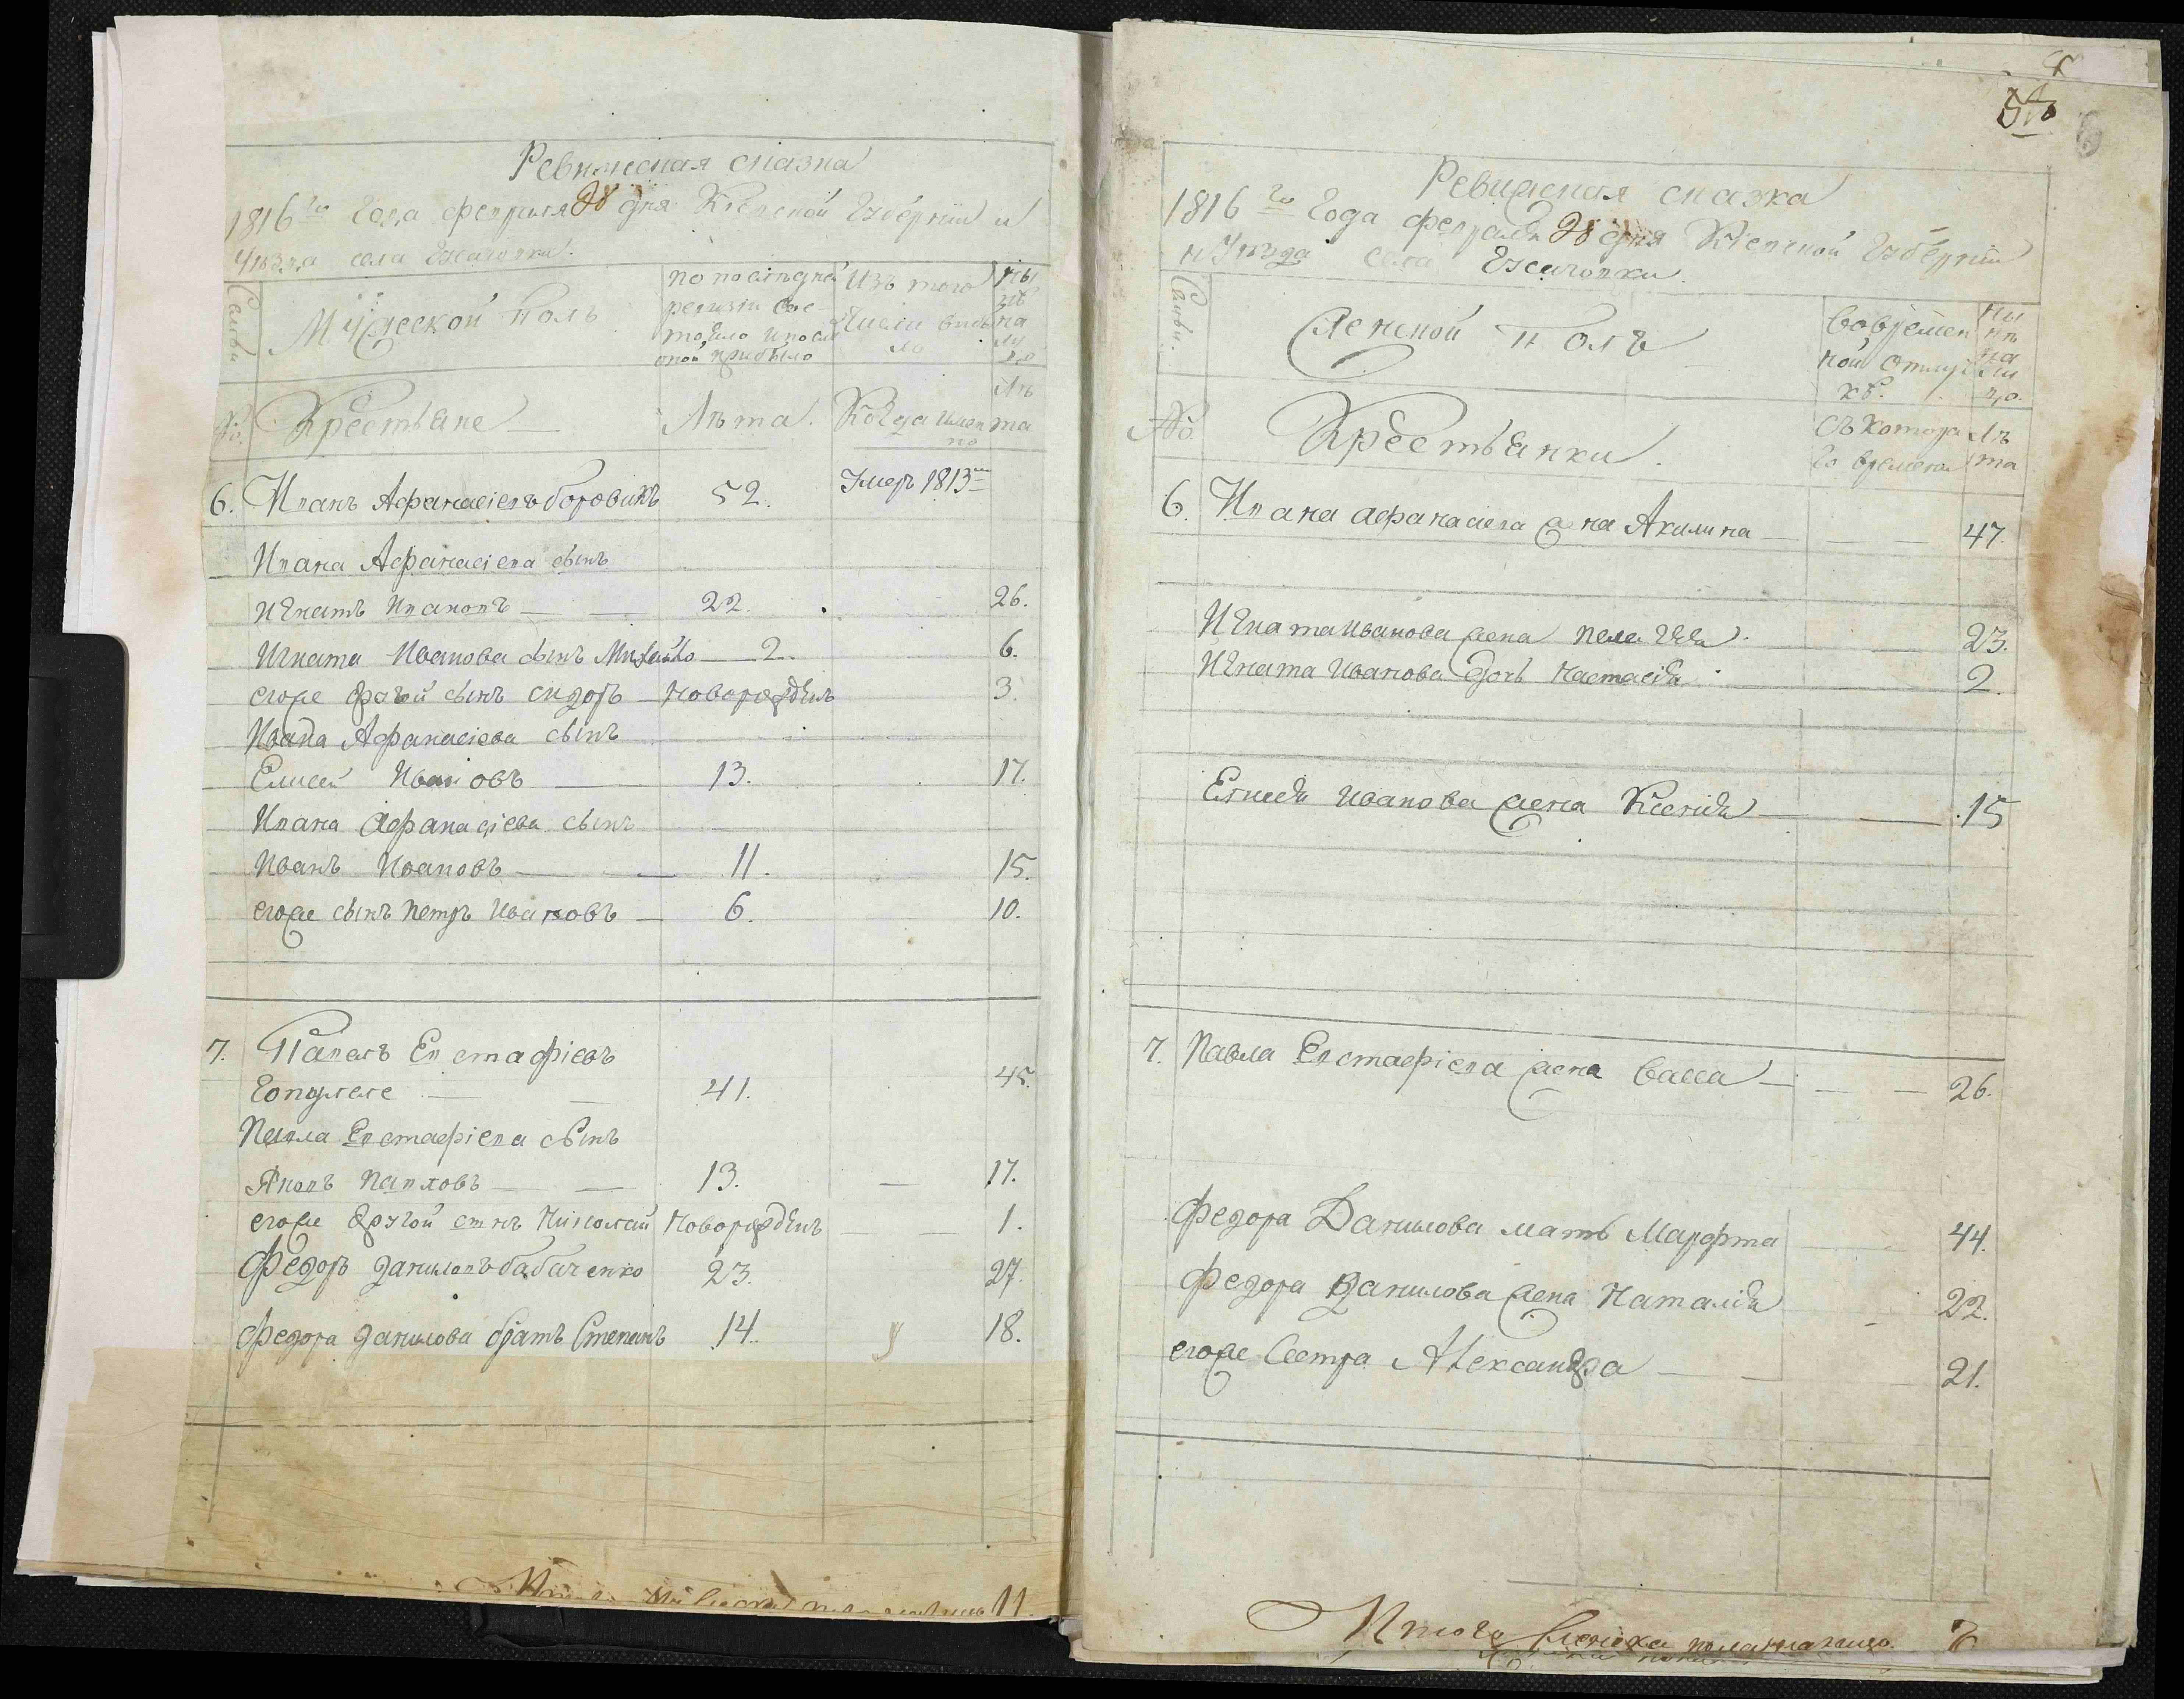 Ревижская сказка
1816го Года февраля 28 дня Кіевской Губерніи и
Уѣзда села Гжачовки.
Семьи
Мужеской Полъ
по последней
ревизіи сос-
тояло и посли
оной прибыло
Изъ того
Числа выбы
ло
Ны
нѣ
на
ли
цо
№.
Крестьяне
Лѣта.
Когда имен
но
Лѣ
та
6. Иванъ Афанасіевъ боровикъ 52. Умеръ 1813м
Ивана Афанасіева сынъ
Игнатъ Ивановъ 22. 26.
Игната Иванова сынъ Михайло 2. 6.
егоже другой сынъ сидоръ новорожденъ 3.
Ивана Афанасіева сынъ
Елисей Ивановъ 13. 17.
Ивана Афанасіева сынъ
Иванъ Ивановъ 11. 15.
егоже сынъ петръ Ивановъ 6. 10.
7. Павелъ Евстафіевъ
41. 45.
Павла Евстафіева сынъ
Яковъ Павловъ 13. 17.
егоже другой сынъ Николай Новорожденъ 1.
Федоръ даниловъ бабаченко 23. 27.
Федора данилова братъ Степанъ 14. 18.
11.
Ревижская сказка
1816го Года февраля 28 дня Кіевской Губерніи
и Уѣзда села Гжачовки
Семьи.
Женской Полъ
Вовремен
ной отлуч
кѣ.
Ны
нѣ
на
ли
цо.
№
Крестьянки.
Съ котора
го времени
Лѣ
та
6. Ивана афанасева жена Акилина 47.
Игната Иванова жена пелагея 23.
Игната Иванова дочь Настасія 2.
Елисея Иванова жена Ксенія 15
7. Павла Евстафіева жена Васса 26.
Федора Данилова мать Марфта 44.
Федора Данилова жена Наталія 22.
егоже Сестра Александра 21.
Итого женска пола налицо. 8